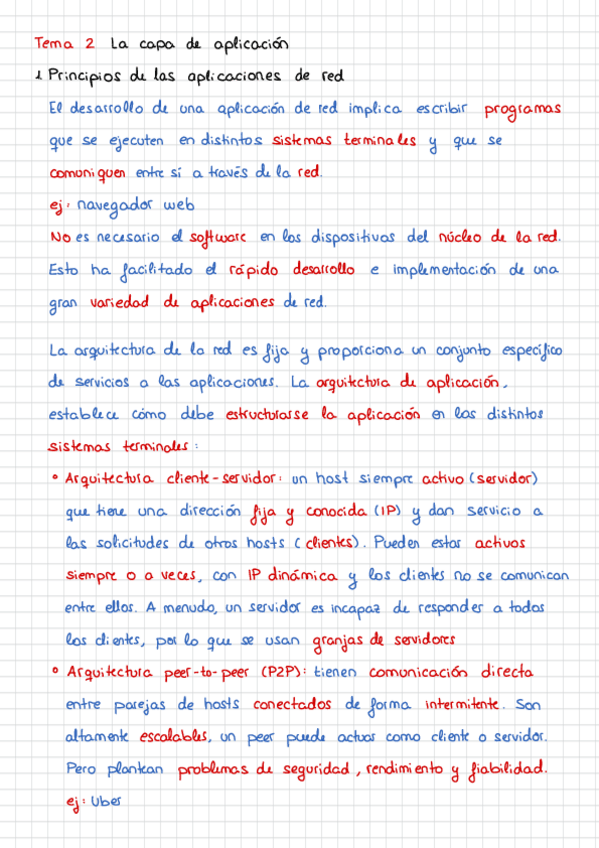 Tema 2 La capa de aplicación
1 Principios de las aplicaciones de red
El desarrollo de una aplicación de red implica escribir programas
que se ejecuten en distintos sistemas terminales y que se
comuniquen entre sí a través de la red.
ej: navegador web
No es necesario el software en los dispositivos del núcleo de la red.
Esto ha facilitado el rápido desarrollo e implementación de una
gran variedad de aplicaciones de red.
La arquitectura de la red es fija y proporciona un conjunto específico
de servicios a las aplicaciones. La arquitectura de aplicación,
establece cómo debe estructurarse la aplicación en los distintos
sistemas terminales:
° Arquitectura cliente-servidor: un host siempre activo (servidor)
que tiene una dirección fija y conocida (IP) y dan servicio a
las solicitudes de otros hosts (clientes). Pueden estar activos
siempre o a veces, con IP dinámica y los clientes no se comunican
entre ellos. A menudo, un servidor es incapaz de responder a todos
los clientes, por lo que se usan granjas de servidores
° Arquitectura peer-to-peer (P2P): tienen comunicación directa
entre parejas de hosts conectados de forma intermitente. Son
altamente escalables, un peer puede actuar como cliente o servidor.
Pero plantean problemas de seguridad, rendimiento y fiabilidad.
ej: Uber